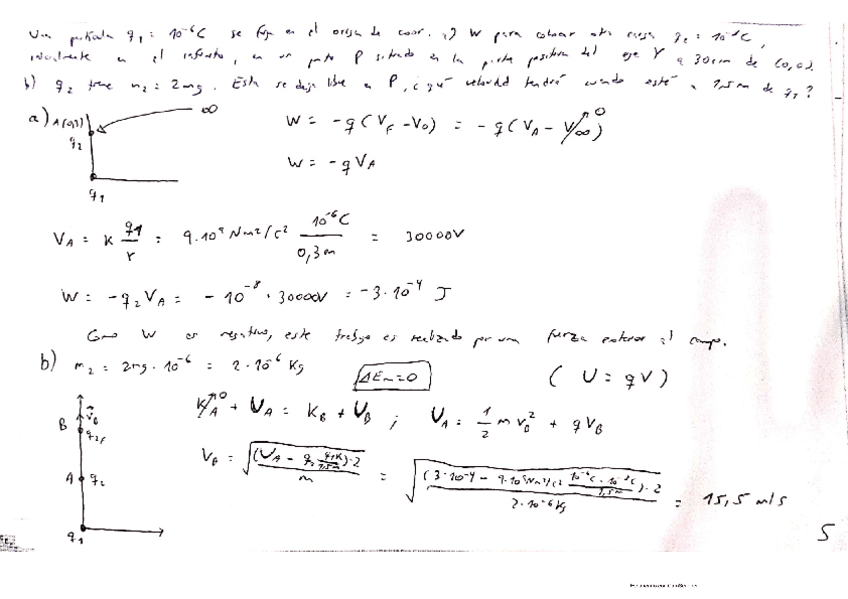 Una partícula q₁ = 10⁻⁶C se fija en el origen de coor. a) W para colocar otra carga q₂ = 10⁻⁸C,
inicialmente en el infinito, en un punto P situado en la parte positiva del eje Y a 30cm de (0,0).
b) q₂ tiene m₂ = 2mg. Esta se deja libre en P, ¿qué velocidad tendrá cuando esté a 1,5m de q₁?
a) A(0,3) ∞
q₂
q₁
W = -q(V_F - V₀) = -q(V_A - V∞)⁰
W = -qV_A
V_A = K q₁/r = 9·10⁹ Nm²/C² 10⁻⁶C/0,3m = 30000V
W = -q₂V_A = -10⁻⁸ · 30000V = -3·10⁻⁴ J
Como W es negativo, este trabajo es realizado por una fuerza exterior al campo.
b) m₂ = 2mg · 10⁻⁶ = 2·10⁻⁶ Kg ΔEm=0 (U = qV)
K_A⁰ + U_A = K_B + U_B ; U_A = 1/2 m v_B² + qV_B
B v_B
q₂f
A q₂
q₁
V_B = √((U_A - q₂ q₁K/1,5m)·2/m) = √((3·10⁻⁴ - 9·10⁹Nm²/C² 10⁻⁶C·10⁻⁸C/1,5m)·2/2·10⁻⁶Kg) = 15,5 m/s
5